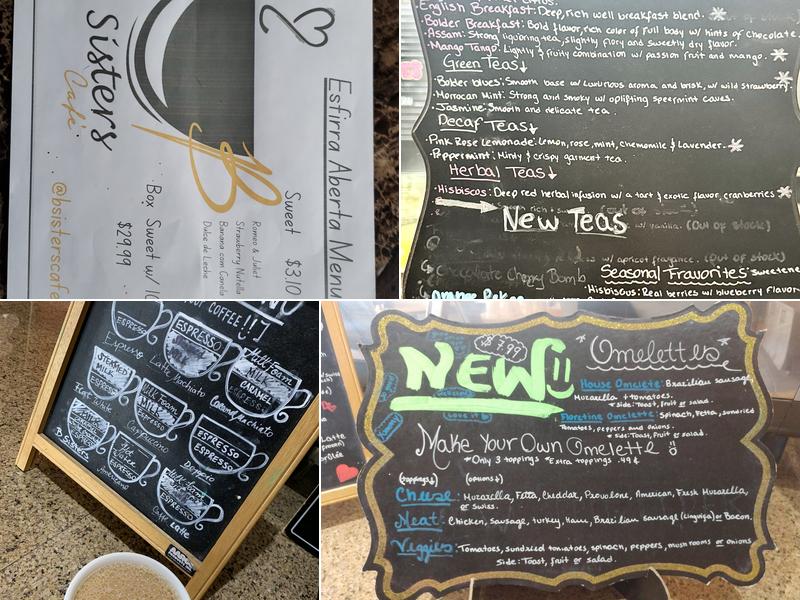 Sisters
Café
@bsisterscafe
B
Esfirra Aberta Menu
Sweet $3.10
Romeo & Juliet
Strawberry Nutella
Banana com Canela
Dulce de Leche
Box Sweet w/ 10
$29.99
English Breakfast: Deep, rich well breakfast blend.
Bolder Breakfast: Bold flavor, rich color of full body w/ hints of Chocolate.
Assam: Strong liquoring tea, slightly flory and sweetly dry flavor.
Mango Tango: Lightly & fruity combination w/ passion fruit and mango.
Green Teas↓
Bolder blues: Smooth base w/ luxurious aroma and brisk, w/ wild strawberry.
Morrocan Mint: Strong and smoky w/ uplifting spearmint caves.
Jasmine: Smooth and delicate tea.
Decaf Teas↓
Pink Rose Lemonade: Lemon, rose, mint, chemomile & Lavender.
Peppermint: Minty & crispy garment tea.
Herbal Teas↓
Hisbiscos: Deep red herbal infusion w/ a tart & exotic flavor, cranberries
New Teas
w/ vanilla. (Out of stock)
w/ apricot fragrance. (Out of stock)
Chocolate Cherry Bomb
Seasonal Fravorites
Sweetene
Hisbiscus: Real berries w/ blueberry Flavor
COFFEE!!
ESPRESSO
Espresso
ESPRESSO
Latte Machiato
Milk Foam
CARAMEL
ESPRESSO
Caramel Machiato
STEAMED
MILK
ESPRESSO
Flat White
Milk Foam
ESPRESSO
Cappuccino
ESPRESSO
ESPRESSO
Doppio
ESPRESSO
B. Sisters
Hot
Water
ESPRESSO
Americano
Milk Foam
ESPRESSO
Caffe Latte
$7.99
NEW
Love it
*Omelettes*
House Omelete: Brazilian sausage,
Muzarella + tomatoes.
*Side: Toast, fruit or salad.
Floretine Omelette: Spinach, Fetta, sundried
Tomatoes, peppers and onions.
*Side: Toast, Fruit or salad.
Make Your Own Omelette
*Only 3 toppings *Extra toppings .49¢
(toppings↓) (options↓)
Cheese: Muzarella, Fetta, Cheddar, Provolone, American, Fresh Muzarella,
or Swiss.
Meat: Chicken, Sausage, turkey, Ham, Brazilian Sausage (Linguiça) or Bacon.
Veggies: Tomatoes, sundried tomatoes, spinach, peppers, mushrooms or onions
Side: Toast, fruit or salad.